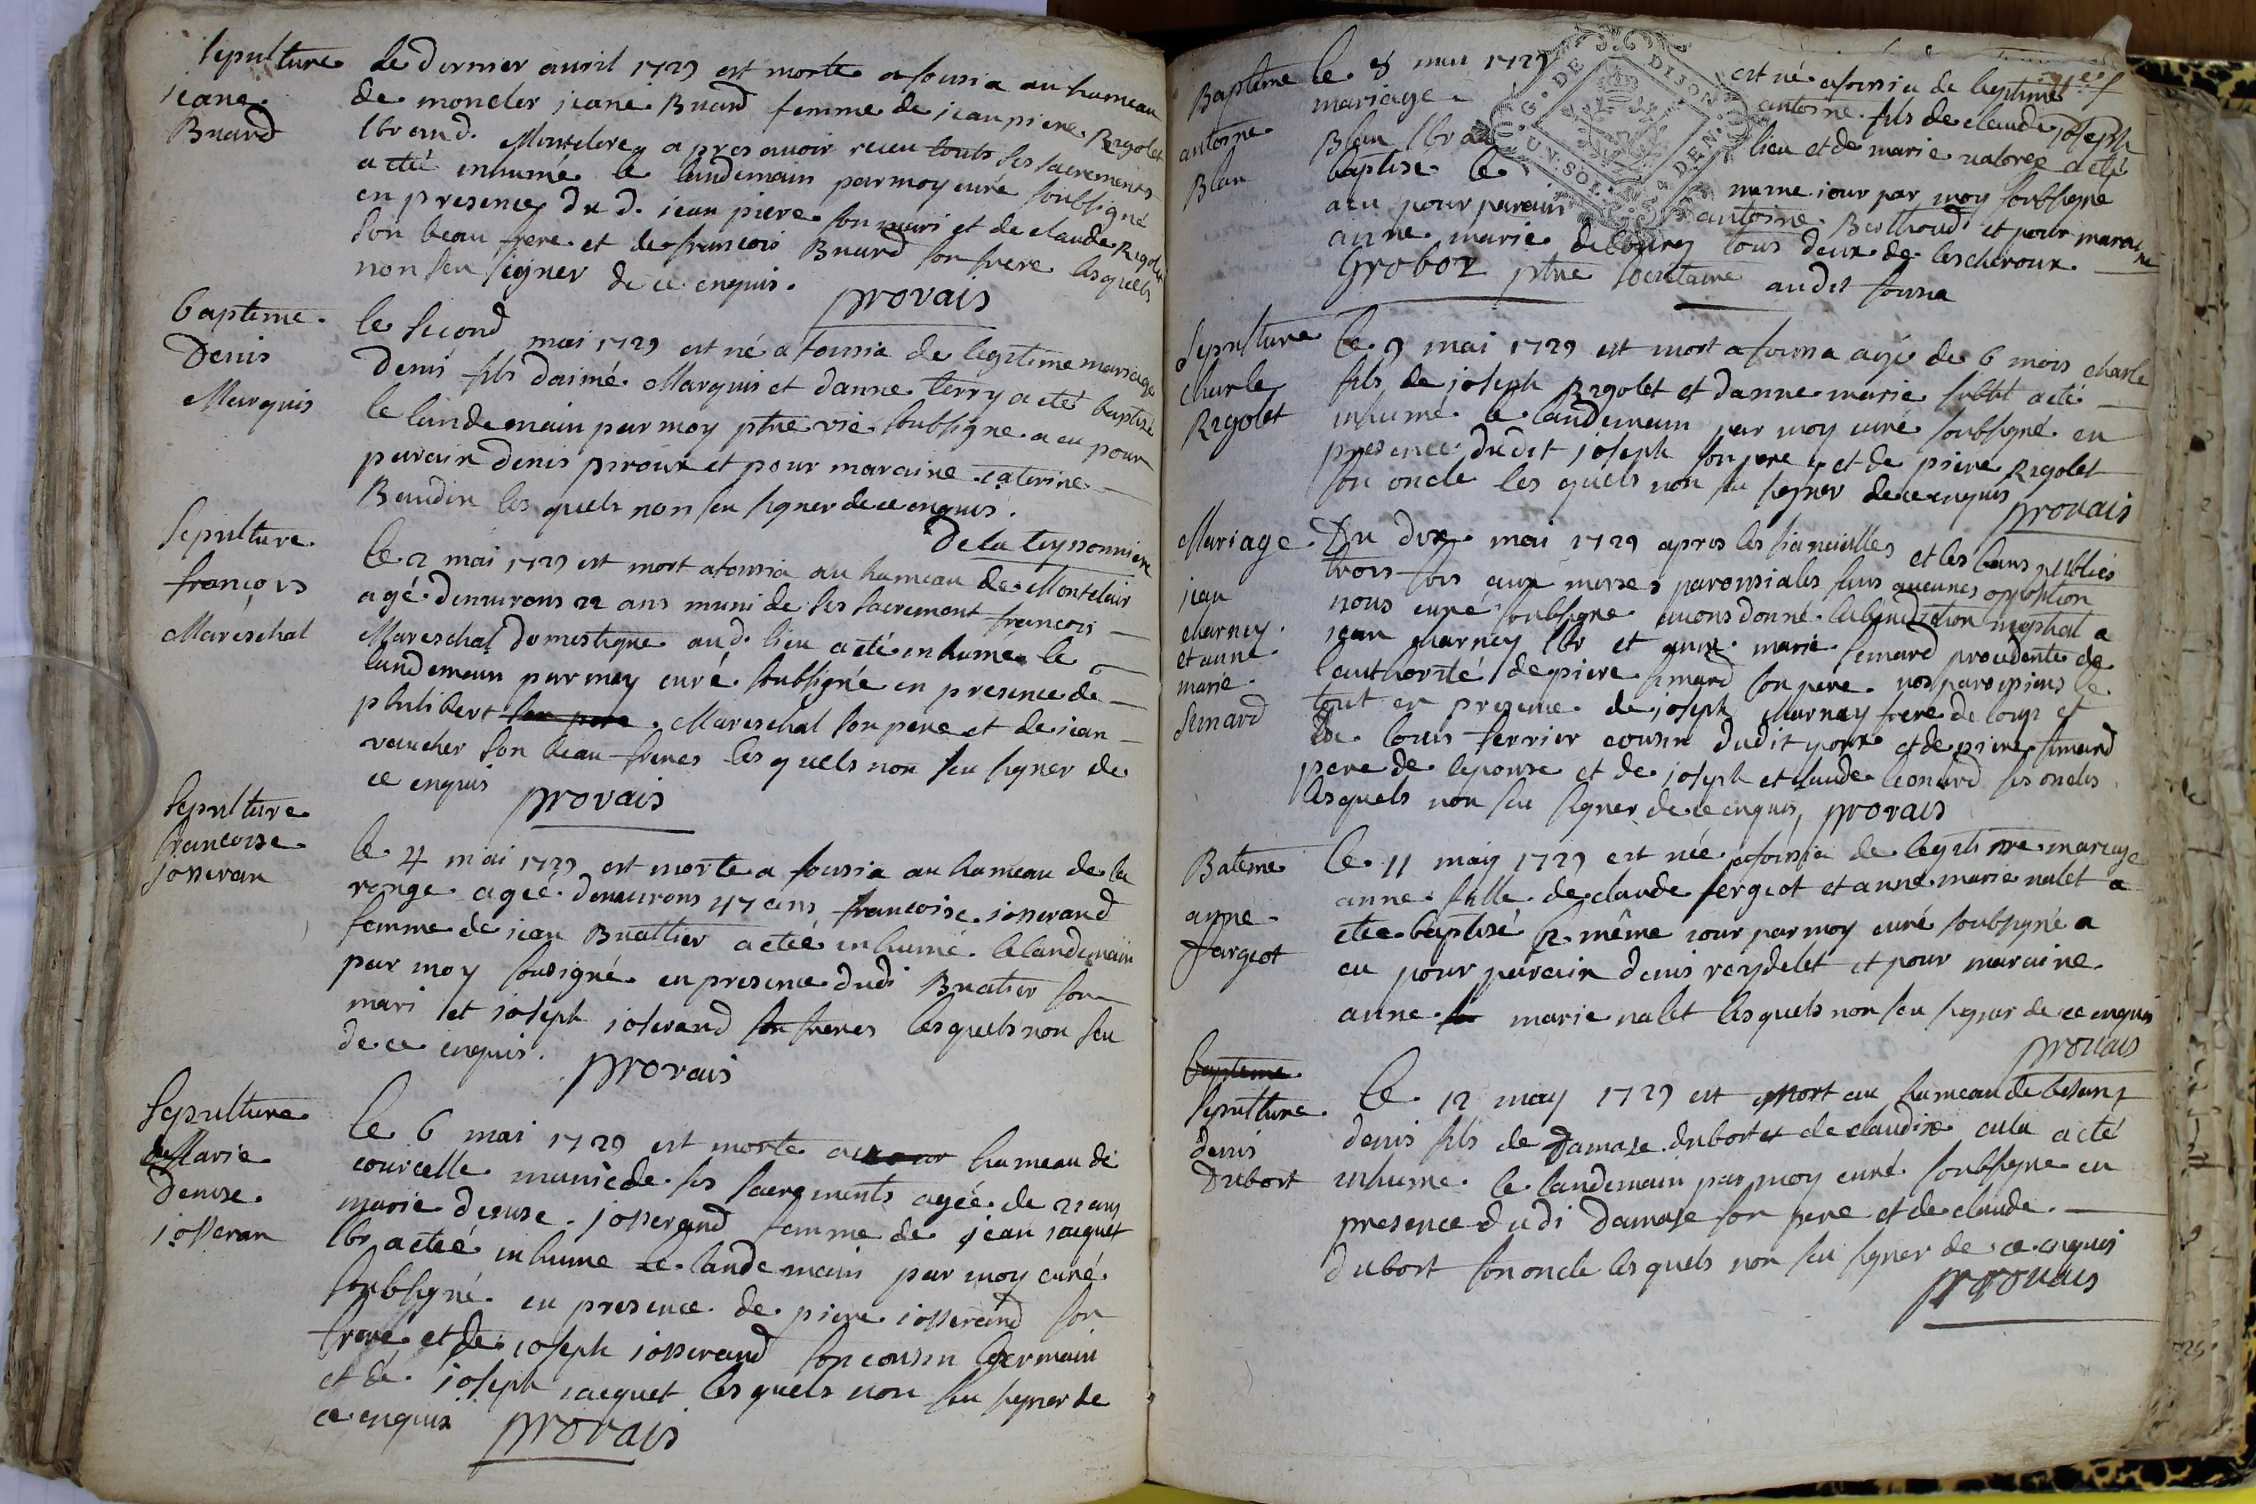 Sepulture
jeane
Buard
le dernier avril 1729 est morte a sousia au hameau
de moncler jeane Buard femme de jean piere Rigolet
lbr aud. Montclerc a pres avoir receu touts ses sacrements
a eté inhumé le landemain par moy curé soubsigné
en presence du d. jean piere son mari et de claude Rigolet
son beau frere et de francois Buard son frere lesquels
non seu signer de ce enquis.
provais
bapteme
Denis
Marquis
le second mai 1729 est né a sousia de legitime mariage
denis fils daimé Marquis et danne terry a eté baptisé
le landemain par moy ptre vic soubsigne a eu pour
parain denis piroux et pour maraine caterine
Baudin les quels non seu signer de ce enquis.
De la teyssonniere
Sepulture
françois
Mareschal
le 2 mai 1729 est mort a sousia au hameau de Montclair
agé denvirons 22 ans muni de ses sacrement francois
Mareschal domestique aud. lieu a eté inhumé le
landemain par moy curé soubsigné en presence de
philibert son pere Mareschal son pere et de jean
vaucher son beau freres les quels non seu signer de
ce enquis provais
Sepulture
francoise
josseran
le 4 mai 1729 est morte a sousia au hameau de la
ronge ageé denvirons 47 ans francoise josserand
femme de jean Buattier a eteé inhumé le landemain
par moy sousigné en presence dudi Buatier son
mari et joseph joserand son freres les quels non seu
de ce enquis. provais
Sepulture
de Marie
Denise
josseran
le 6 mai 1729 est morte au hameau de
courcelle muniè de ses sacrements ageé de 21 ans
marie denise josserand femme de jean jacquet
lbr a eteé inhume le landemain par moy curé
soubsigné en presence de piere josserand son
frere et de joseph josserand son cousin germain
et de joseph jacquet les quels non seu signer de
ce enquis provais
Bapteme
antoine
Blan
le 8 mai 1729 est né a sousia de legitime
mariage antoine fils de claude joseph
Blan lbr au lieu et de marie valoree a eté
baptise le meme jour par moy soubsigne
a eu pour parain antoine Berthoud et pour maraine
anne marie tous deux de lescheroux
Groboz ptre societaire audit sousia
Sepulture
charle
Rigolet
le 9 mai 1729 est mort a sousia agé de 6 mois charle
fils de joseph Rigolet et danne marie subtil a eté
inhumé le landemain par moy curé soubsigné en
presence dudit joseph son pere et de piere Rigolet
son oncle les quels non seu signer de ce enquis
provais
Mariage
jean
charney
et anne
marie
simard
Du dix mai 1729 apres les fiancailles et les bans publiés
trois fois aux messes paroissiales sans aucunes opposition
nous curé soubsigne avons donné la benediction nuptial a
jean charney lbr et anne marie simard procedente de
lauthorité de piere simard son pere nos paroissiens le
tout en presence de joseph charnay frere de loup et
de louis ferrier cousin dudit poux et de piere simard
pere de lepouse et de joseph et claude leonard ses oncles
lesquels non seu signer de ce enquis, provais
Bateme
anne
fargeot
le 11 may 1729 est neé a sousia de legitime mariage
anne fille de claude fergeot et anne marie nalet a
eteé baptisé le même jour par moy curé soubsigné a
eu pour parain denis reydelet et pour maraine
anne marie nalet lesquels non seu signer de ce enquis
provais
bapteme
Sepulture
denis
Dubort
le 12 may 1729 est mort au hameau de besan
denis fils de Damase dubort et de claudine cula a eté
inhume le landemain par moy curé soubsigne en
presence dudi Damase son pere et de claude
dubort son oncle les quels non seu signer de ce enquis
provais
G. DE DIJON
UN. SOL. 4 DEN.